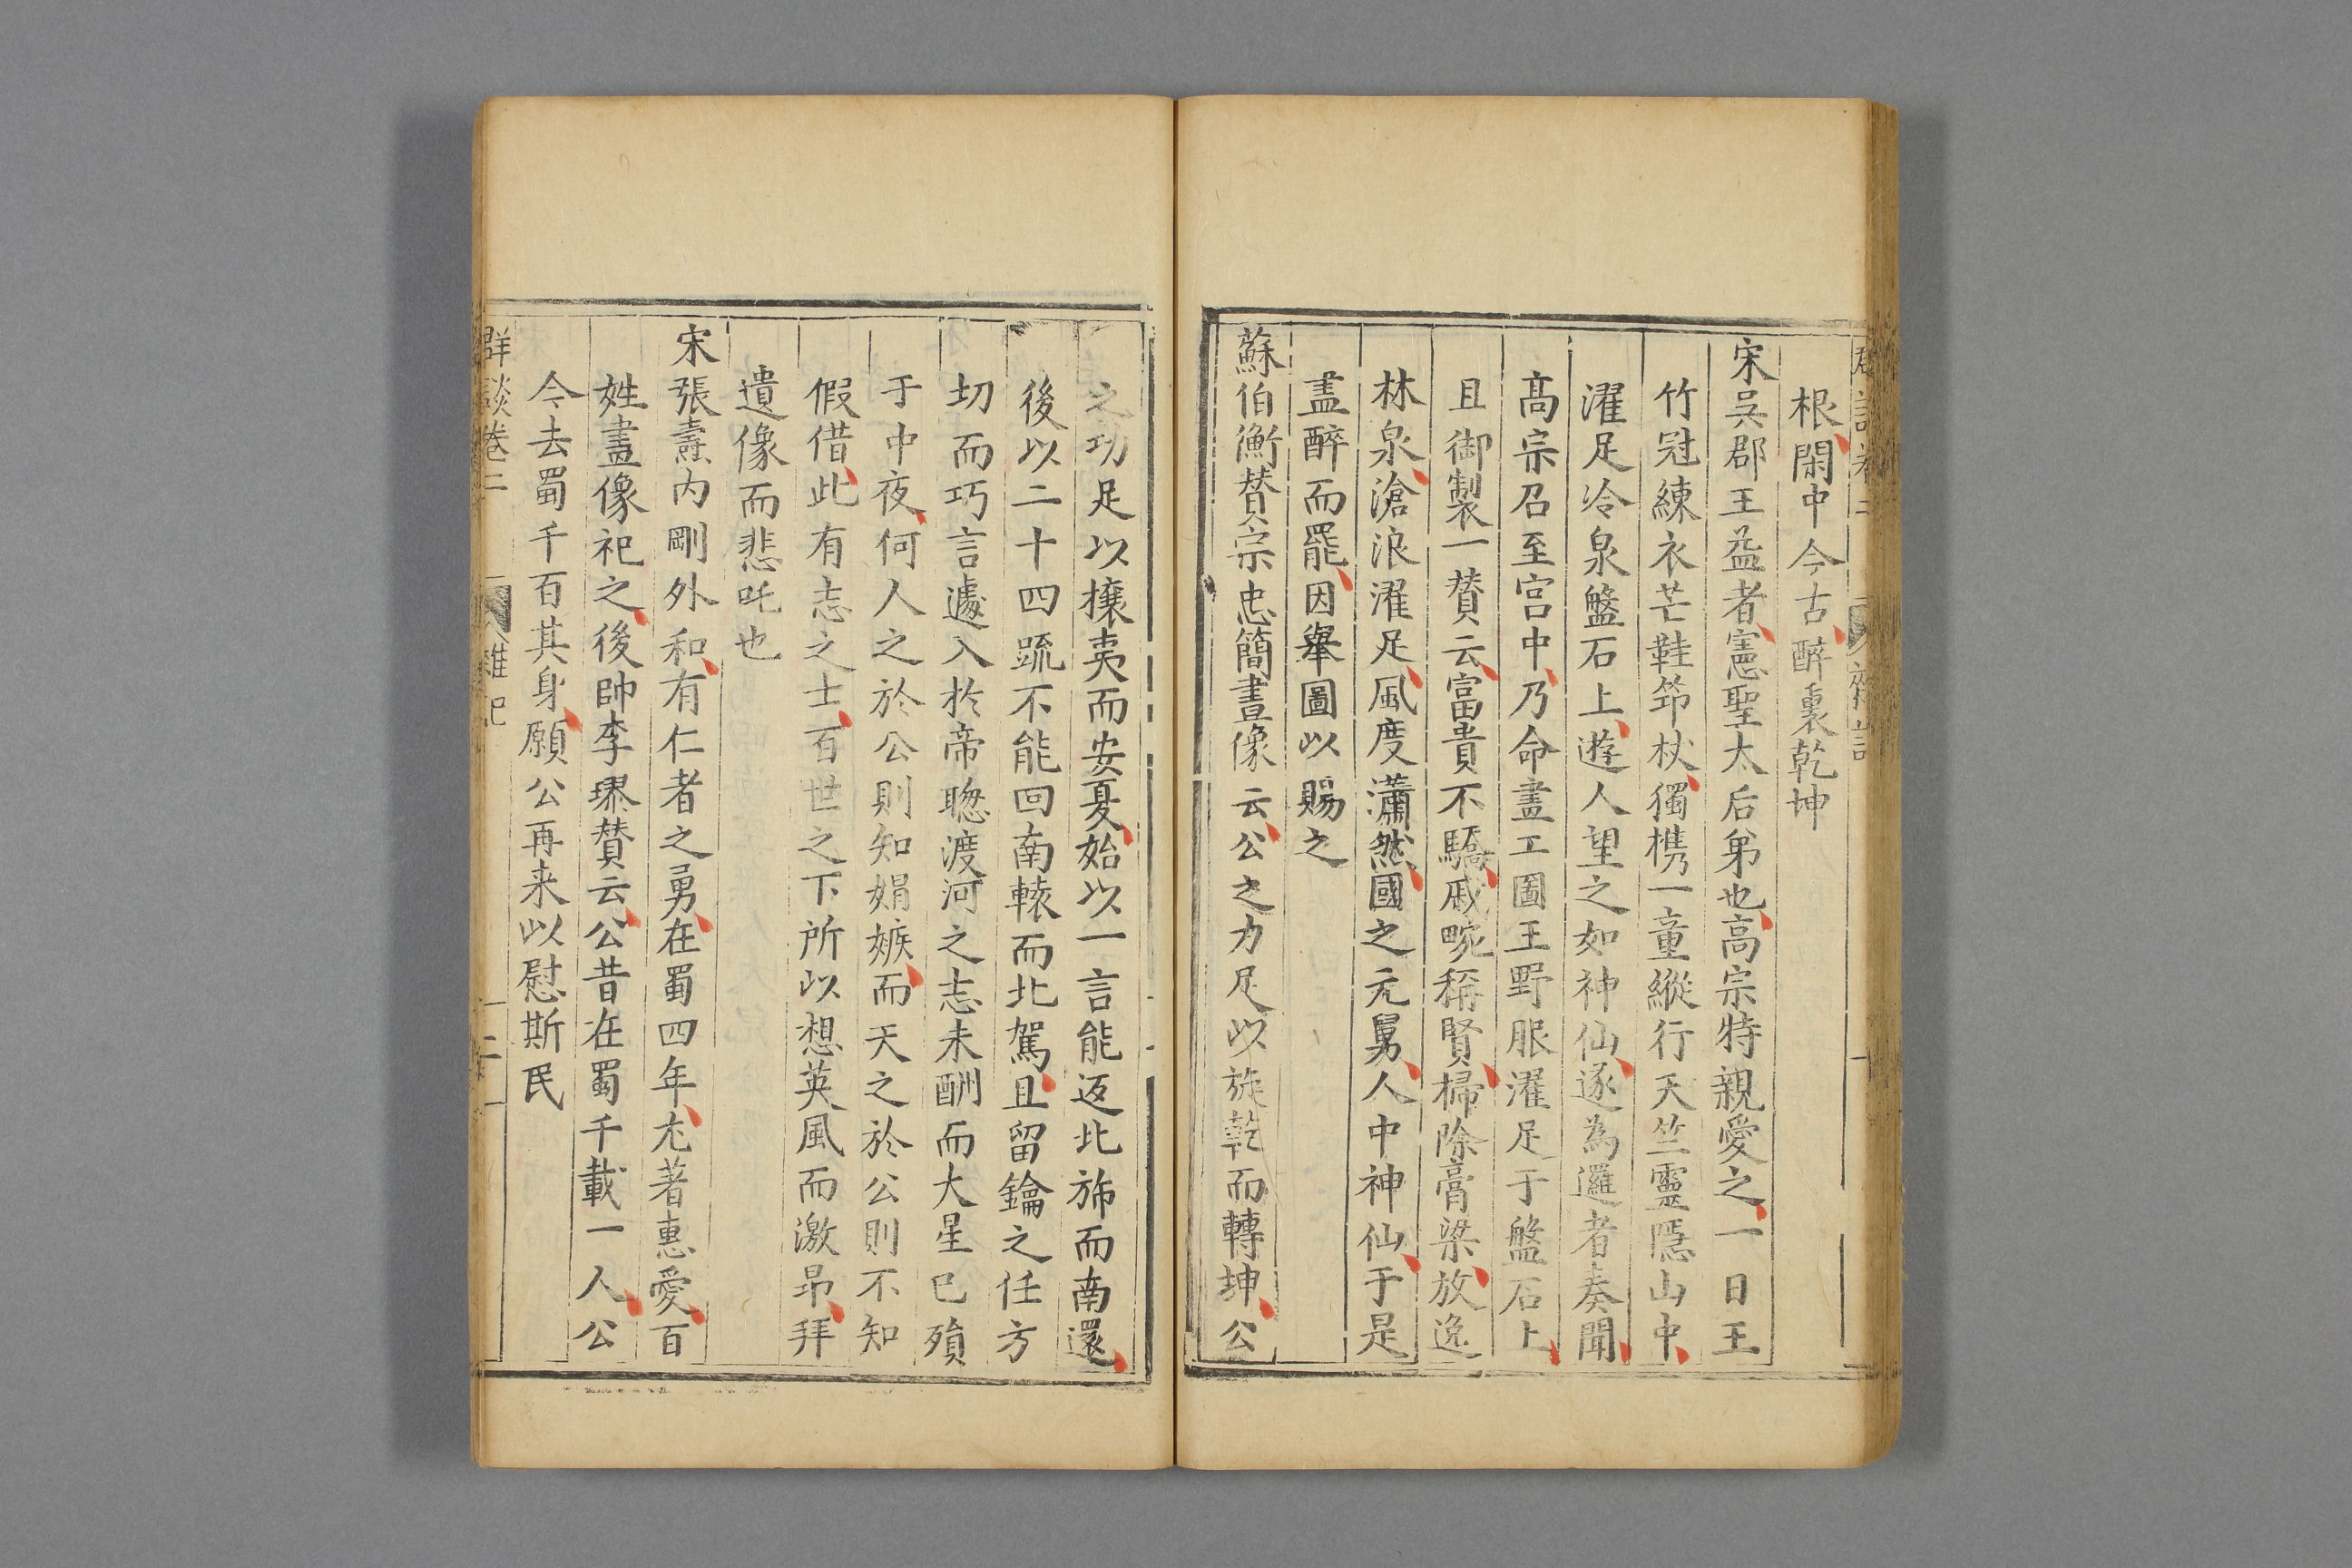 根閑中今古醉裏乾坤
宋吳郡王益者憲聖太后弟也高宗特親愛之一日王
竹冠練衣芒鞋筇杖獨携一童縱行天竺靈隱山中
濯足冷泉盤石上遊人望之如神仙逐為邏者奏聞
髙宗召至宫中乃命畫工圖王野服濯足于盤石上
且御製一賛云富貴不驕戚畹稱賢掃除膏梁放逸
林泉滄浪濯足風度瀟然國之元舅人中神仙于是
盡醉而罷因舉圖以賜之
蘇伯衡賛宗忠簡畫像云公之力足以旋乾而轉坤公
之功足以攘夷而安夏始以一言能返北斾而南還
後以二十四疏不能回南轅而北駕且留鑰之任方
切而巧言遽入扵帝聰渡河之志未酬而大星已殞
于中夜何人之於公則知娟嫉而天之於公則不知
假借此有志之士百世之下所以想英風而激昂拜
遺像而悲吒也
宋張燾内剛外和有仁者之勇在蜀四年尤著惠愛百
姓畫像祀之後帥李璆賛云公昔在蜀千載一人公
今去蜀千百其身願公再来以慰斯民
群談卷二
雜記
二